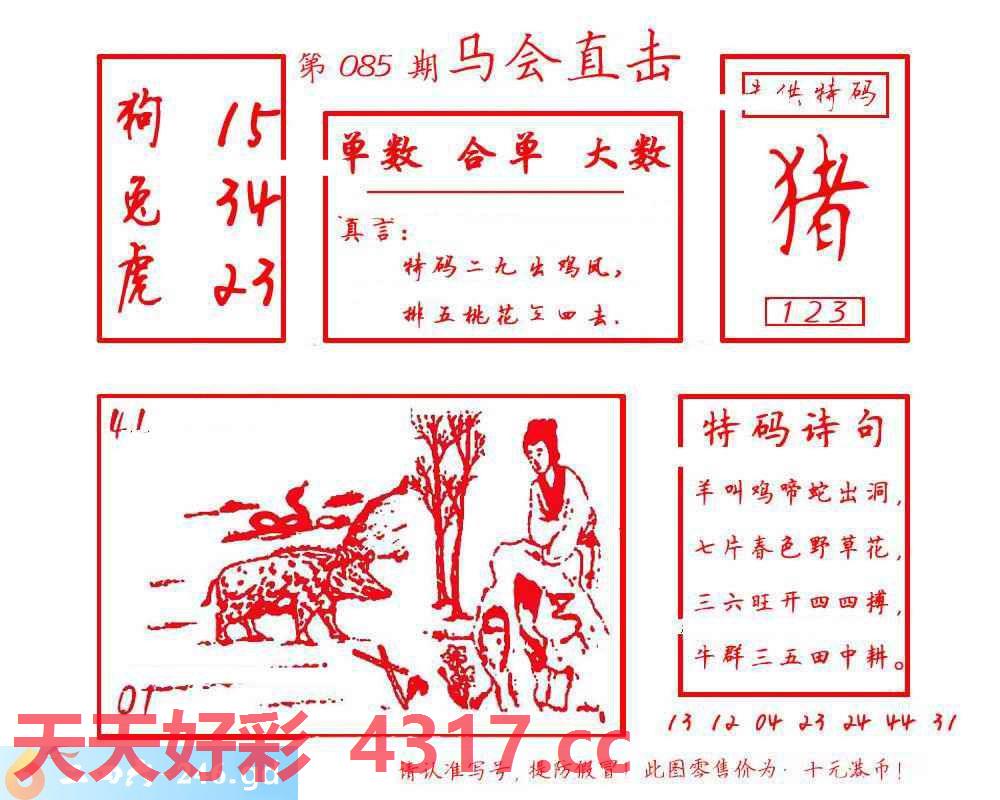 第 085 期 马会直击
狗 15
兔 34
虎 23
单数 合单 大数
真言：
特码二九出鸡凤，
排五桃花五四去．
供特码
猪
123
41
01
特码诗句
羊叫鸡啼蛇出洞，
七片春色野草花，
三六旺开四四搏，
牛群三五田中耕。
13 12 04 23 24 44 31
天天好彩 4317.cc
246.gd
请认准写号，提防假冒！此图零售价为·十元港币！